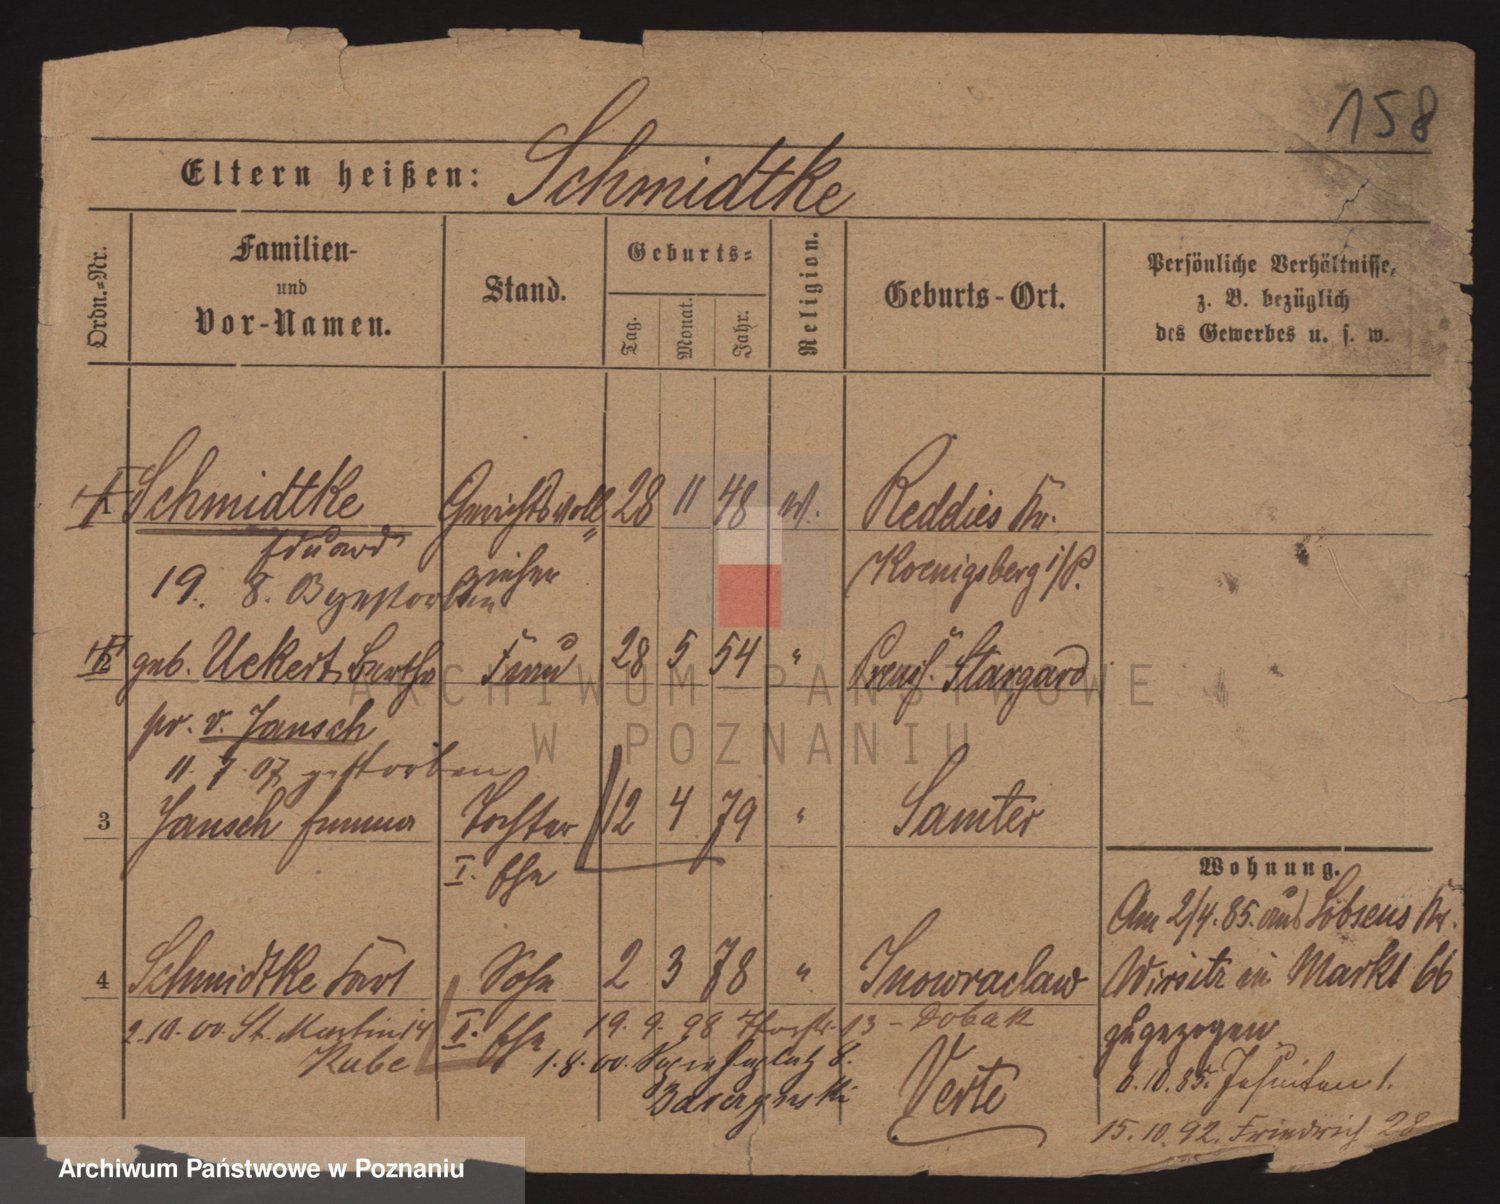 158
Eltern heißen: Schmidtke
Ordn.=Nr.
Familien-
und
Vor-Namen.
Stand.
Geburts=
Tag.
Monat.
Jahr.
Religion.
Geburts-Ort.
Persönliche Verhältnisse,
z. B. bezüglich
des Gewerbes u. s. w.
1 Schmidtke Gerichtsvoll 28 11 48 Reddies Kr.
Eduard zieher Koenigsberg i/P.
19. 8. gestorben
2 geb. Uekert, Bertha Frau 28 5 54 " Preuß. Stargard
pr. v. Jansch
11. 7. 07 gestorben
3 Jansch Emma Tochter 12 4 79 " Samter
I. Ehe
4 Schmidtke Sohn 2 3 78 " Inowraclaw
II. Ehe
2.10.00. St. Martin 14
Rabe
19. 9. 98 13 -
1.8.00. 8.
Verte
Wohnung.
Am 2/4.85. aus Lobsens Kr.
Wirsitz in Markt 66
zugezogen
6.10.85. Jesuiten 1.
15.10.92. Friedrich 28
ARCHIWUM PAŃSTWOWE
W POZNANIU
Archiwum Państwowe w Poznaniu